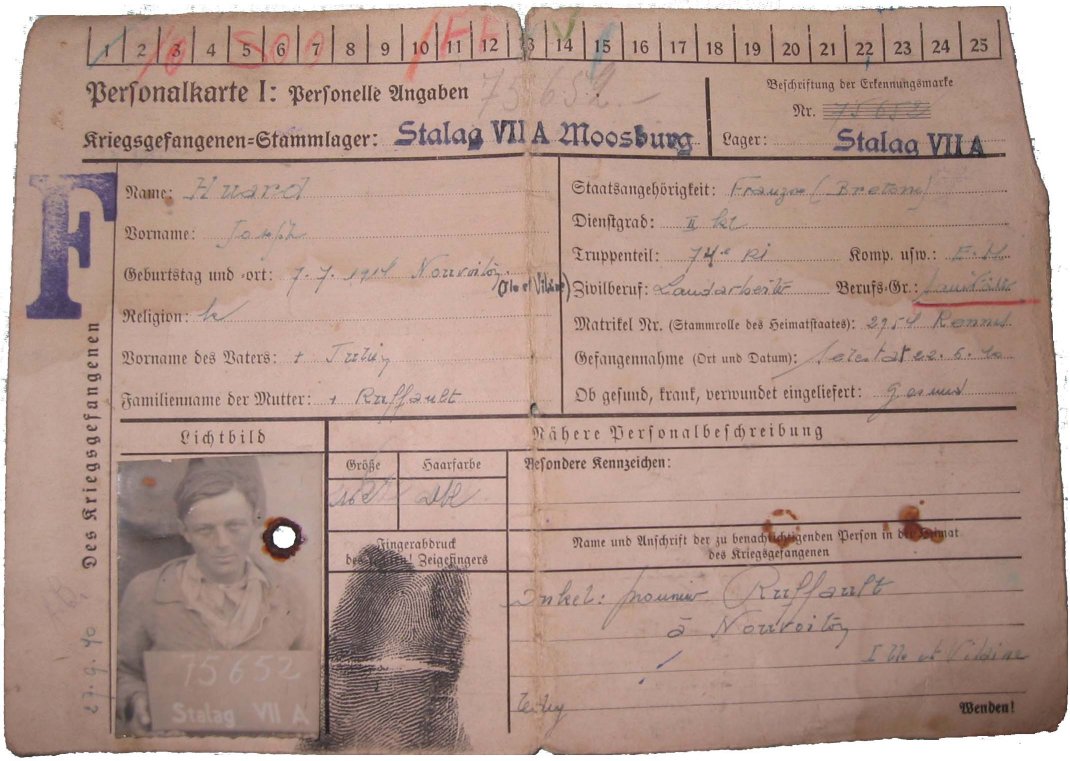 1 2 3 4 5 6 7 8 9 10 11 12 13 14 15 16 17 18 19 20 21 22 23 24 25
Personalkarte I: Personelle Angaben 75652.-
Beschriftung der Erkennungsmarke
Nr. 75652
Kriegsgefangenen=Stammlager: Stalag VII A Moosburg
Lager: Stalag VII A
F
Des Kriegsgefangenen
Name: Huard
Vorname: Joseph
Geburtstag und =ort: 7.7.1914 Nouvoitou
(Ille et Vilaine)
Religion: k
Vorname des Vaters: +
Familienname der Mutter: + Ruffault
Staatsangehörigkeit: Franzose (Bretone)
Dienstgrad: II kl
Truppenteil: 74e RI Komp. usw.:
Zivilberuf: Landarbeiter Berufs=Gr.:
Matrikel Nr. (Stammrolle des Heimatstaates): 2954 Rennes
Gefangennahme (Ort und Datum): 22.6.40
Ob gesund, krank, verwundet eingeliefert: gesund
Lichtbild
Nähere Personalbeschreibung
Größe Haarfarbe Besondere Kennzeichen:
dbl
Fingerabdruck
des rechten! Zeigefingers
Name und Anschrift der zu benachrichtigenden Person in der Heimat
des Kriegsgefangenen
Onkel: Ruffault
à Nouvoitou
Ille et Vilaine
75652
Stalag VII A
27.9.40
Wenden!